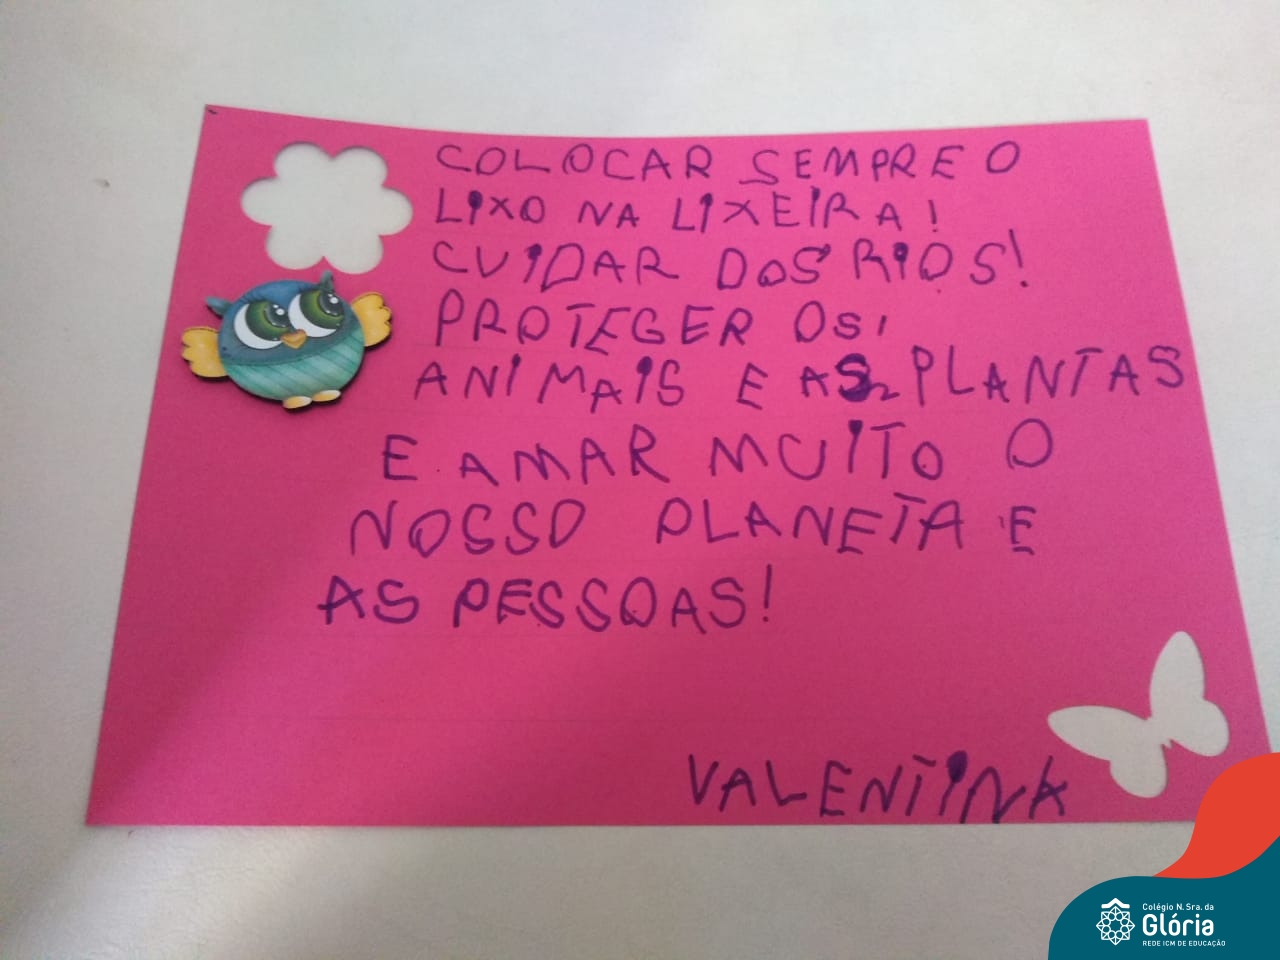 COLOCAR SEMPRE O
LIXO NA LIXEIRA!
CUIDAR DOS RIOS!
PROTEGER OS
ANIMAIS E AS PLANTAS
E AMAR MUITO O
NOSSO PLANETA E
AS PESSOAS!
VALENTINA
Colégio N. Sra. da
Glória
REDE ICM DE EDUCAÇÃO